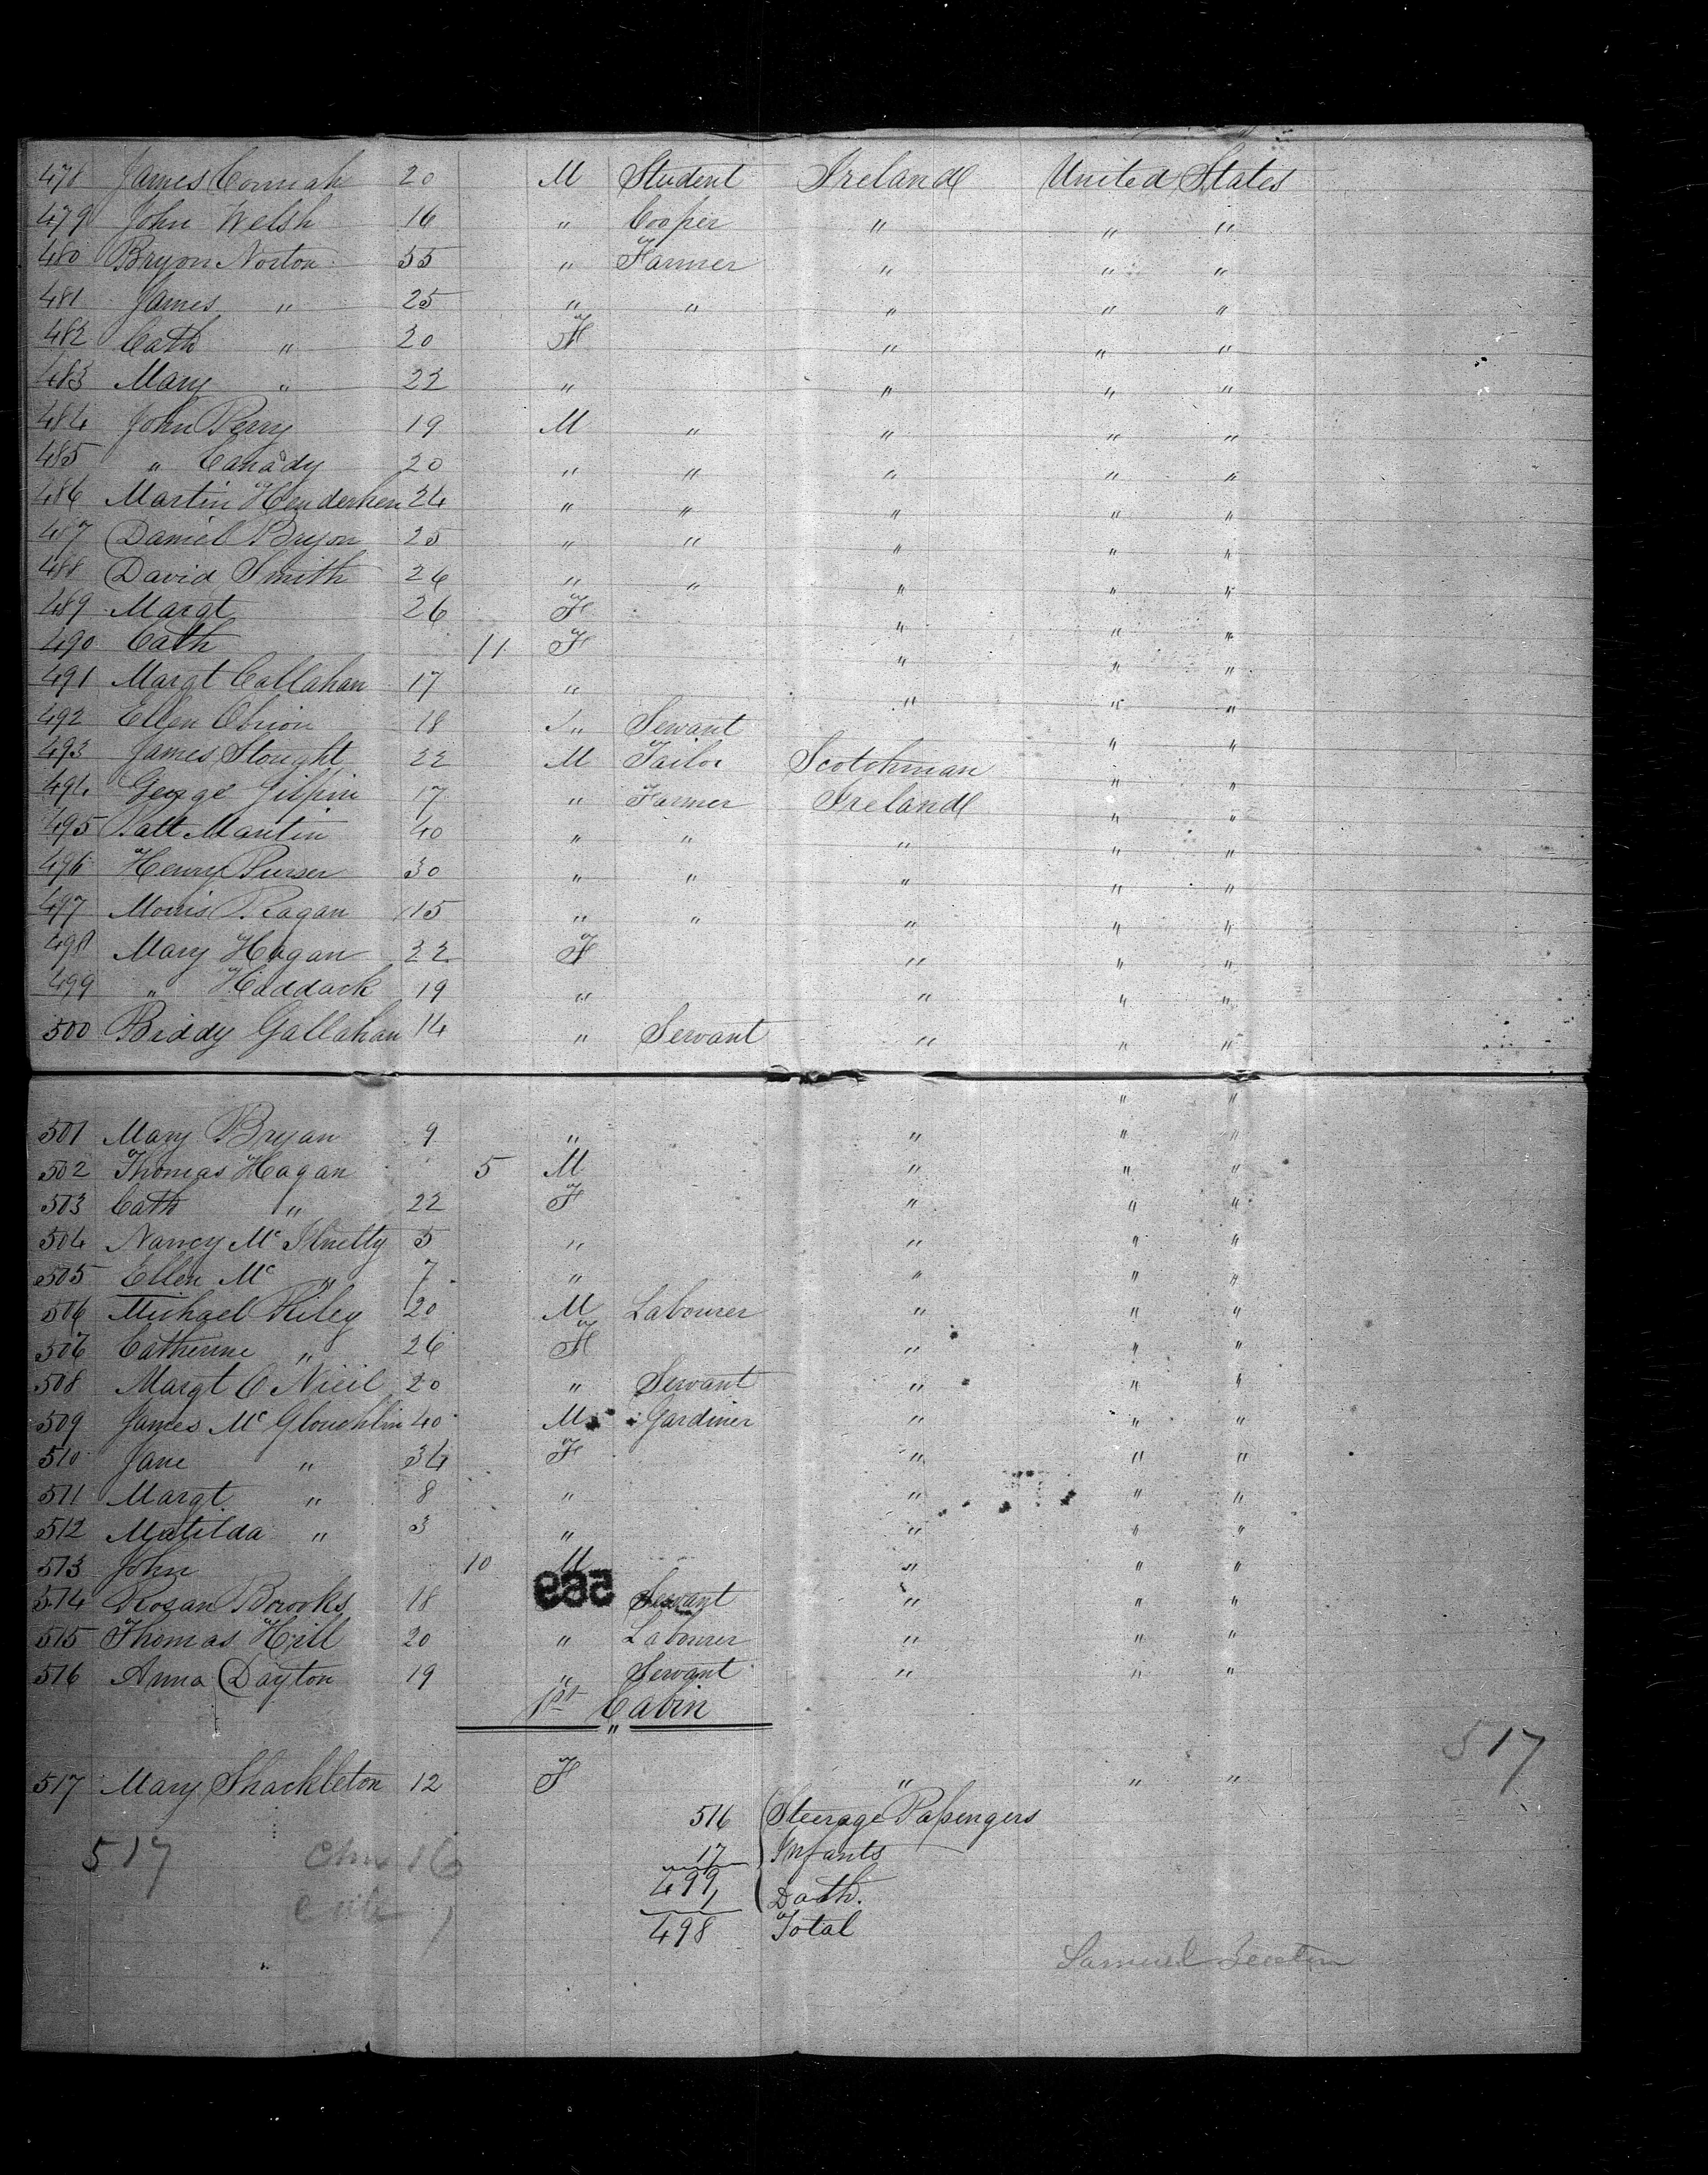 478 James Cornish 20 M Student Ireland United States
479 John Welsh 16 " Cooper " " "
480 Bryon Norton 55 " Farmer " " "
481 James " 25 " " " " "
482 Cath " 20 F " " "
483 Mary " 22 " " " "
484 John Perry 19 M " " " "
485 " Canady 20 " " " " "
486 Martin Henderken 24 " " " " "
487 Daniel Bryon 25 " " " " "
488 David Smith 26 " " " " "
489 Margt 26 F " " "
490 Cath 11 F " " "
491 Margt Callahan 17 " " " "
492 Ellen Obrion 18 " Servant " "
493 James Stought 22 M Tailor Scotchman " "
494 George Gilpin 17 " Farmer Ireland " "
495 Patt Martin 40 " " " " "
496 Henry Purser 30 " " " " "
497 Morris Ragan 15 " " " " "
498 Mary Hagan 22 F " " "
499 " Haddack 19 " " " "
500 Biddy Gallahan 14 " Servant " " "
" "
501 Mary Bryan 9 " " " "
502 Thomas Hagan 5 M " " "
503 Cath " 22 F " " "
504 Nancy Mc 5 " " " "
505 Ellen Mc " 7 " " " "
506 Michael Riley 20 M Labourer " " "
506 Catherine " 26 F " " "
508 Margt O Nieil 20 " Servant " " "
509 James Mc Gloughlin 40 M Gardiner " " "
510 Jane " 34 F " " "
511 Margt " 8 " " " "
512 Matilda " 3 " " " "
513 John 10 M " " "
514 Rosan Brooks 18 569 Servant " " "
515 Thomas Hill 20 " Labourer " " "
516 Anna Dayton 19 " Servant " " "
1st Cabin
"
517
517 Mary Shackleton 12 F " " "
516 Steerage Passengers
517 16 17 Infants
499
1 Death.
498 Total
Samuel